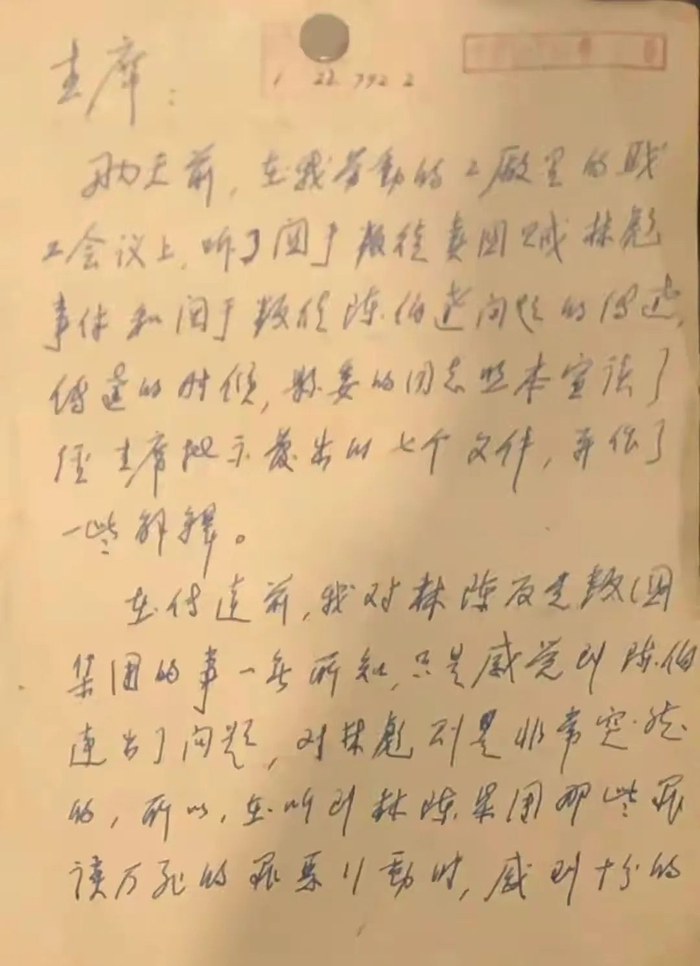 主席：
1 22 792 2
两天前，在我劳动的工厂里的职
工会议上，听了关于叛徒卖国贼林彪
事件和关于叛徒陈伯达问题的传达，
传达的时候，县委的同志照本宣读了
经主席批示发出的七个文件，并作了
一些解释。
在传达前，我对林陈反党叛国
集团的事一无所知，只是感觉到陈伯
达出了问题，对林彪则是非常突然
的，所以，在听到林陈集团那些罪
该万死的罪恶行动时，感到十分的